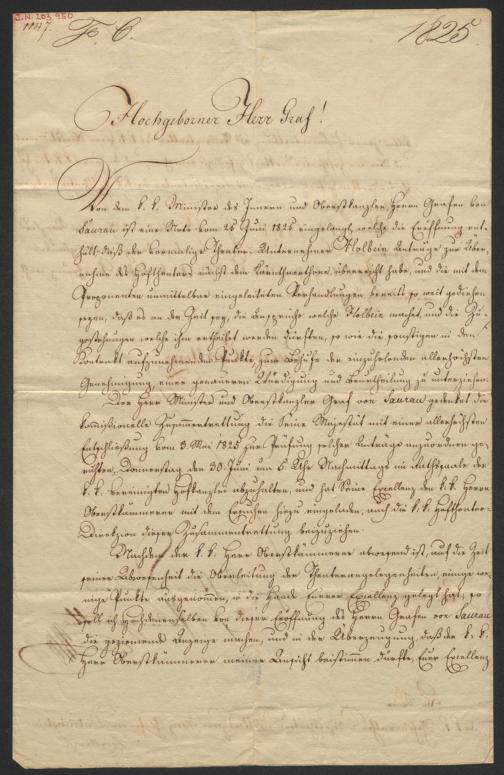 I.N. 203.950
1147. F. C. 1825.
Hochgeborner Herr Graf!
Von dem k. k. Minister des Innern und Oberstkanzler Herrn Grafen von
Saurau ist eine Note vom 26 Juni 1825 eingelangt, welche die Eröffnung ent-
hält, daß der vormalige Theater-Unternehmer Holbein Anträge zur Über-
nahme des Hoftheaters nächst dem Kärnthnerthore überreicht habe, und die mit dem
Proponenten unmittelbar eingeleiteten Verhandlungen bereits so weit gediehen
seyen, daß es an der Zeit sey, die Ansprüche welche Holbein macht, und die Zu-
gestehungen welche ihm ertheilt werden dürften, so wie die sonstigen in den
Kontrakt aufzunehmenden Punkte, zum Behufe der einzuholenden allerhöchsten
Genehmigung einer genaueren Würdigung und Beurtheilung zu unterziehen.
Der Herr Minister und Oberstkanzler Graf von Saurau gedenket die
kommissionelle Zusammentrettung die Seine Majestät mit einer allerhöchsten
Entschließung vom 3. Mai 1825 zur Prüfung solcher Anträge anzuordnen ge-
ruhten, Donnerstag den 30. Juni um 6 Uhr Nachmittags im Rathssaale der
k. k. vereinigten Hofkanzlei abzuhalten, und hat Seine Excellenz den k. k. Herrn
Oberstkämmerer mit dem Ersuchen hiezu eingeladen, auch die k. k. Hoftheater-
Direkzion dieser Zusammentrettung beizuziehen.
Nachdem der k. k. Herr Oberstkämmerer abwesend ist, auf die Zeit
seiner Abwesenheit die Oberleitung der Theaterangelegenheiten, einige we-
nige Punkte ausgenommen, in die Hände Euerer Excellenz gelegt hat; so
soll ich Hochdenenselben von dieser Eröffnung des Herrn Grafen von Saurau
die geziemende Anzeige machen, und in der Überzeugung, daß der k. k.
Herr Oberstkämmerer meiner Ansicht beistimmen dürfte, Euer Excellenz